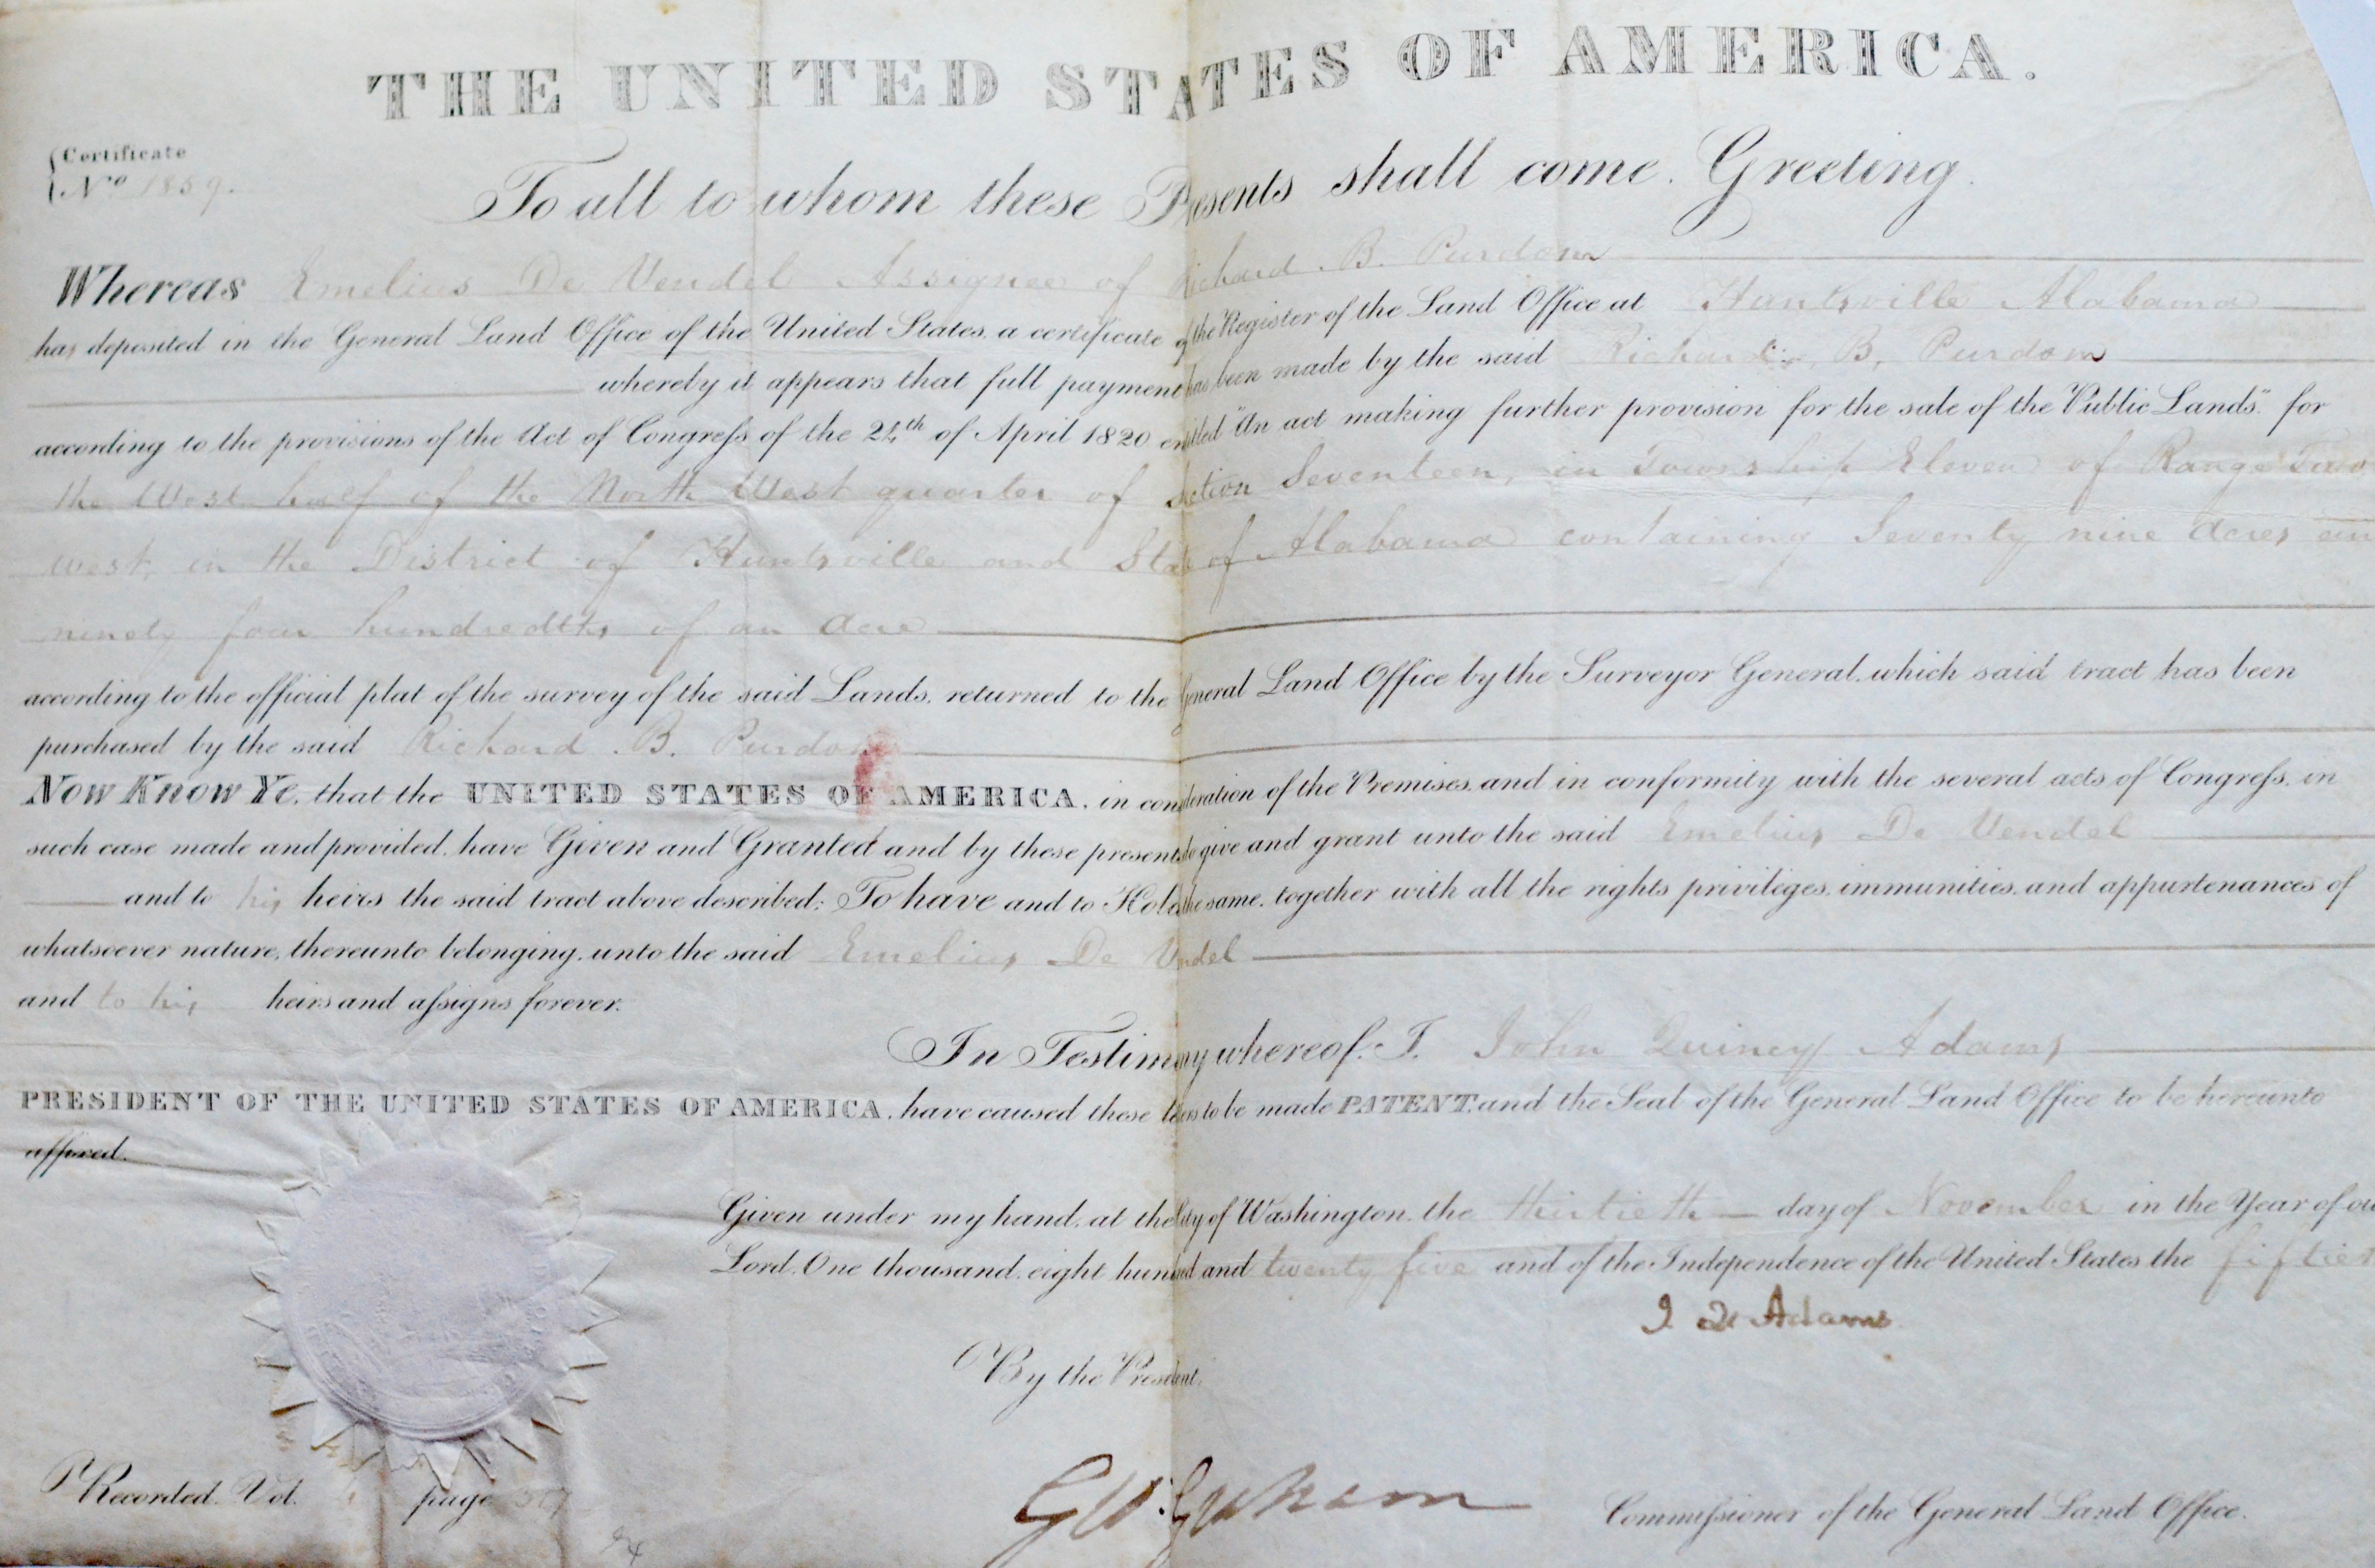 THE UNITED STATES OF AMERICA.
Certificate
No. 1859.
To all to whom these Presents shall come. Greeting.
Whereas Emelius De Vendel Assignee of Richard B. Purdom
has deposited in the General Land Office of the United States, a certificate of the Register of the Land Office at Huntsville Alabama
whereby it appears that full payment has been made by the said Richard B. Purdom
according to the provisions of the Act of Congress of the 24th of April 1820 entitled "An act making further provision for the sale of the Public Lands". for
the West half of the North West quarter of section Seventeen, in Township Eleven of Range Two
west, in the District of Huntsville and State of Alabama containing Seventy nine acres and
ninety four hundredths of an acre
according to the official plat of the survey of the said Lands, returned to the General Land Office by the Surveyor General, which said tract has been
purchased by the said Richard B. Purdom
NOW KNOW YE, that the UNITED STATES OF AMERICA, in consideration of the Premises, and in conformity with the several acts of Congress, in
such case made and provided, have Given and Granted and by these presents do give and grant unto the said Emelius De Vendel
and to his heirs the said tract above described: To have and to Hold the same, together with all the rights privileges, immunities, and appurtenances of
whatsoever nature, thereunto belonging, unto the said Emelius De Vendel
and to his heirs and assigns forever.
In Testimony whereof, I. John Quincy Adams
PRESIDENT OF THE UNITED STATES OF AMERICA, have caused these Letters to be made PATENT, and the Seal of the General Land Office to be hereunto
affixed.
Given under my hand, at the City of Washington, the thirtieth day of November in the Year of our
Lord, One thousand, eight hundred and twenty five and of the Independence of the United States the fiftieth
J Q Adams.
By the President,
Recorded. Vol. page
G W. Graham Commissioner of the General Land Office.